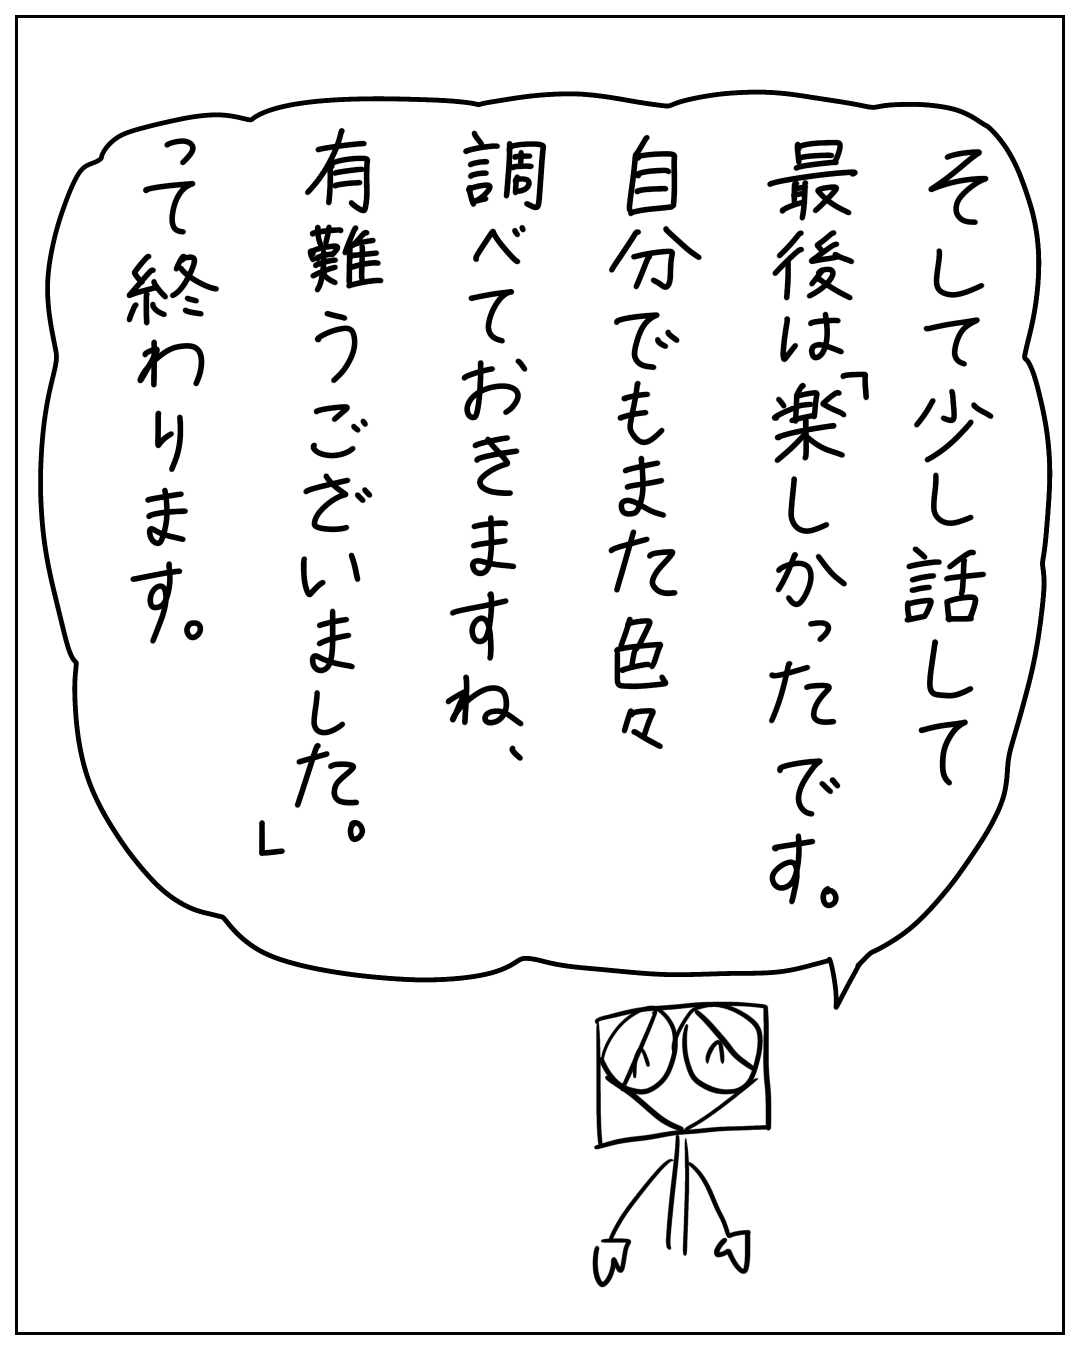 そして少し話して
最後は「楽しかったです。
自分でもまた色々
調べておきますね、
有難うございました。」
って終わります。